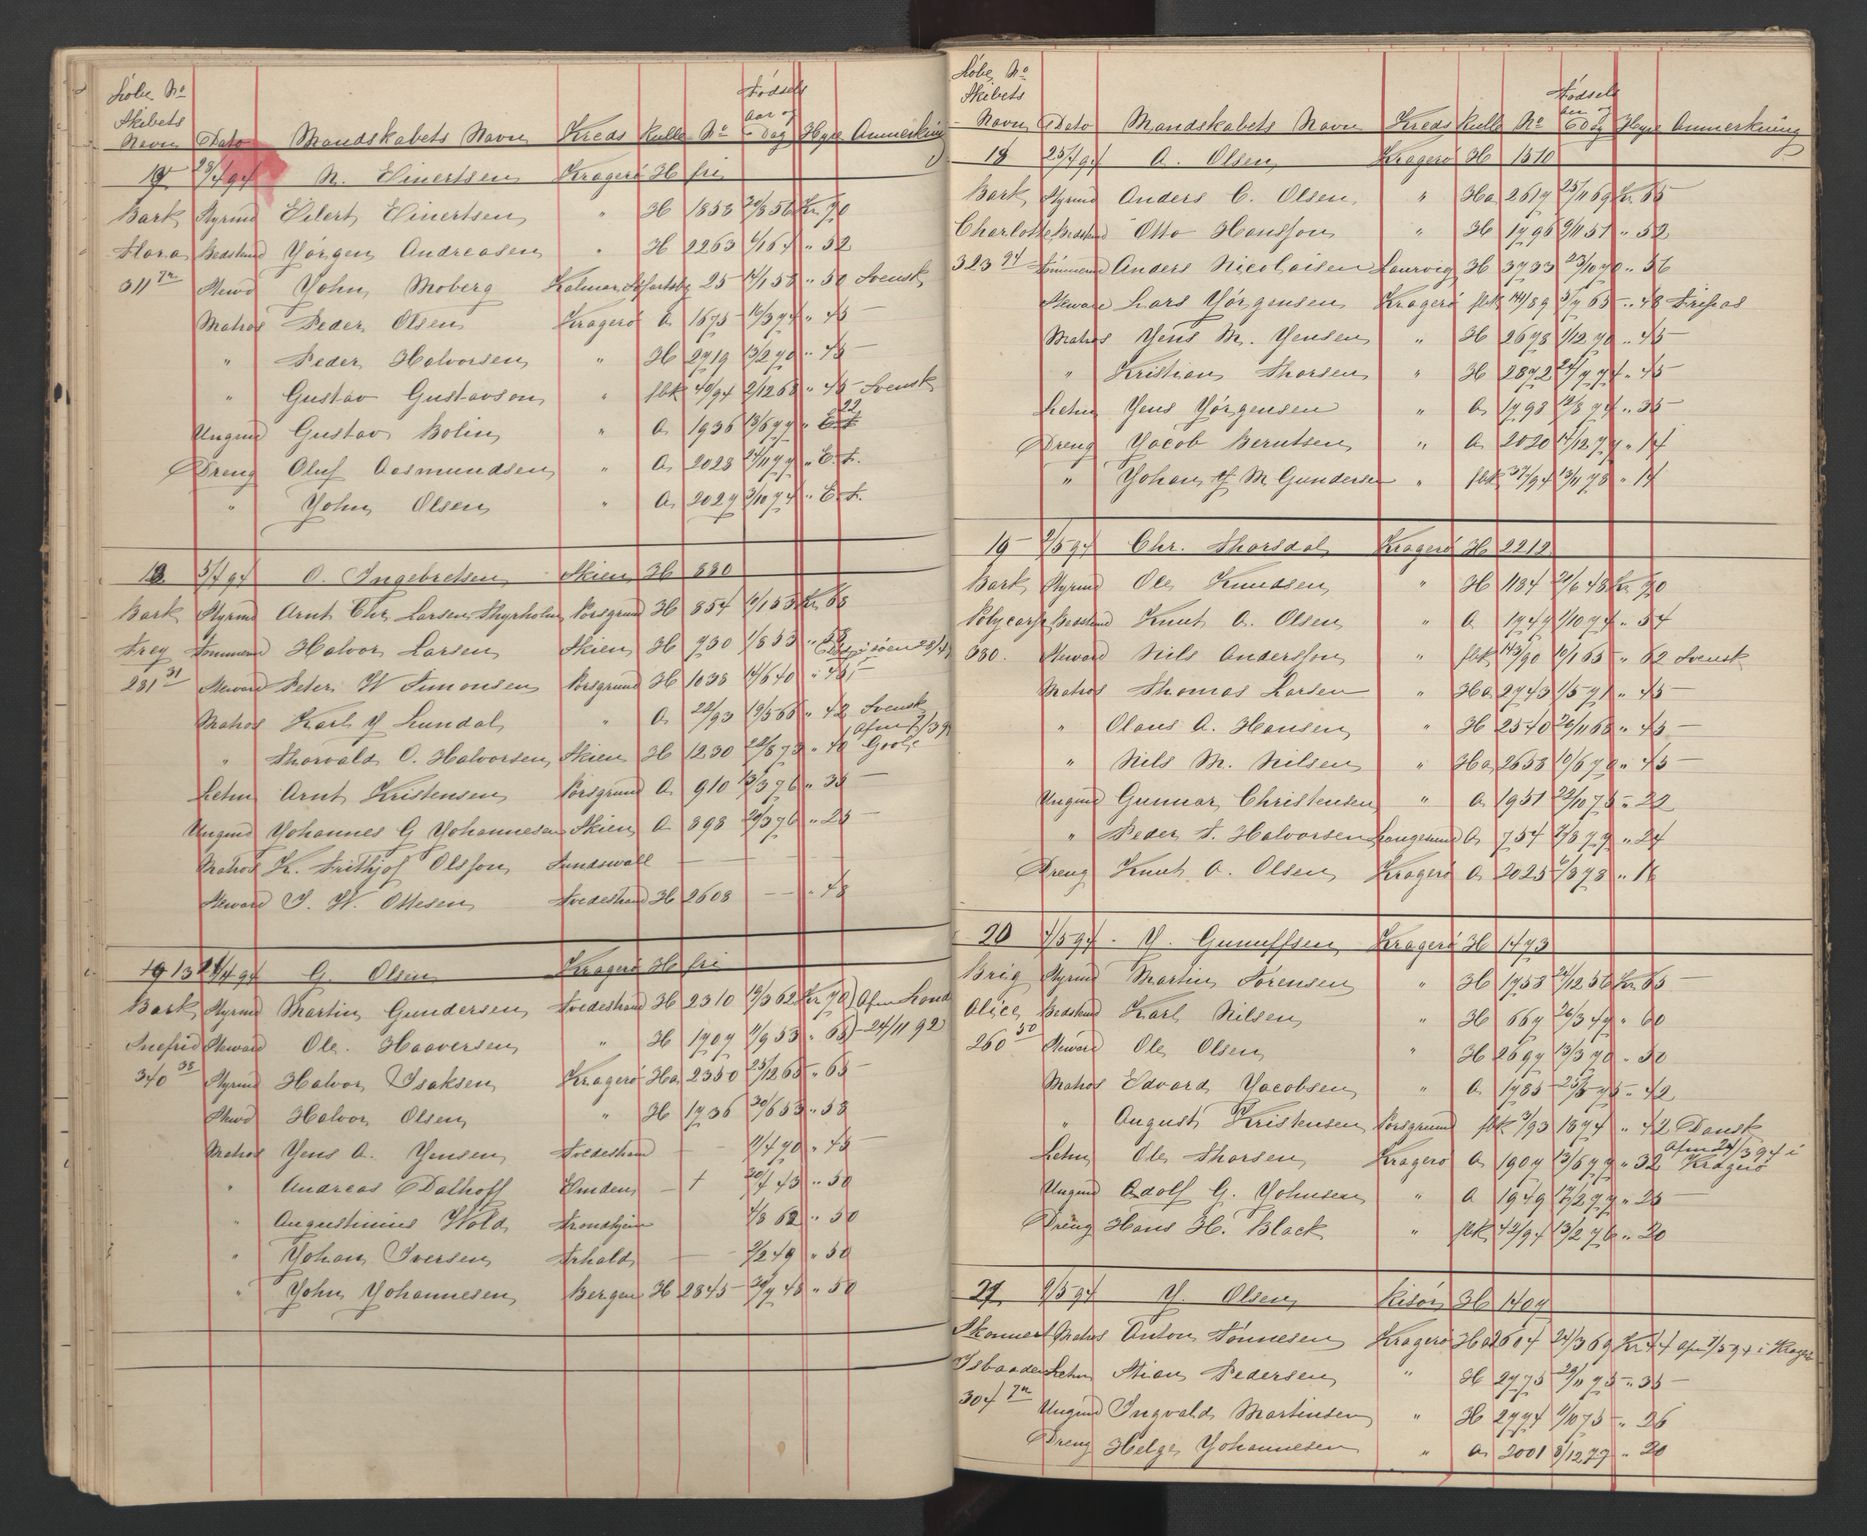 Løbe No
Skibets
Navn Dato Mandskabets Navn Kreds Rulle No Fødsels Aar og Dag Hyre Anmerkning
N. Einertsen Kragerø H fri
Bark Styrmd Eilert Einertsen " H 1858 Kr. 70
Flora Bedstmd Jørgen Andreasen " H 2263 " 52
311 Stewd John Moberg Kalmar 25 " 50 Svensk
Matros Peder Olsen Kragerø A 1675 " 45
" Peder Halvorsen " H 2719 13/2 70 " 45
" Gustav Gustavson " fbk 40/94 2/12 68 " 45 Svensk
Ungmd Gustav Bolin " A 1936 22
Dreng Oluf Aasmundsen " A 2028 E. F.
" John Olsen " A 2027 3/10 74 " E. F.
18 O. Ingebretsen Skien H 880
Bark Styrmd Arnt Chr. Larsen Styrholm Porsgrund H 854 Kr. 68
Frey Tømmermd Halvor Larsen Skien H 730 1/8 53
281 31 Steward Peter W Simonsen Porsgrund H 1038 14/6 40
Matros Karl J Lundal " A 22/93 19/5 66 " 42 Svensk
" Thorvald O. Halvorsen Skien H 1230 " 40 Goole
Letm Arnt Kristensen Porsgrund A 910 13/3 76 " 35
Ungmd Johannes G Johannesen Skien A 898 29/3 76 " 25
Matros K. Frithjof Olsson Sundswall
Steward J. W. Ottesen Tvedestrand H 2608 " 48
G. Olsen Kragerø H fri
Bark Styrmd Martin Gundersen Tvedestrand H 2310 19/3 62 Kr 70
Snefrid Steward Ole Haaversen " H 1707 11/9 53 " 65 24/11 92
340 38 Styrmd Halvor Isaksen Kragerø Ha 2350 25/12 65 " 65
Stewd Halvor Olsen " H 1736 20/6 53 " 58
Matros Jens A. Jensen Tvedestrand 11/4 70 " 45
" Andreas Dalhoff Emden + 20/4 43 " 50
" Augustinius Wold Trondhjem 4/8 62 " 50
" Johan Iversen 2/2 49 " 50
" John Johannesen Bergen H 2845 " 50
Løbe No
Skibets
Navn Dato Mandskabets Navn Kreds Rulle No Fødsels aar og Dag Hyre Anmerkning
18 25/4 94 A. Olsen Kragerø H 1510
Bark Styrmd Anders C. Olsen " Ha 2617 25/11 69 Kr. 65
Charlotte Bedstmd Otto Hansson " H 1796 9/11 51 " 52
323 94 Tømmermd Anders Nicolaisen Laurvig H 3733 23/10 70 " 56
Steward Lars Jørgensen Kragerø fbk 141/89 5/7 65 " 48 Fripas
Matros Jens M. Jensen " H 2678 1/12 70 " 45
" Kristian Thorsen " H 2872 " 45
Letm Jens Jørgensen " A 1798 12/8 74 " 35
Dreng Jacob Berntsen " A 2020 14/12 77 " 14
" Johan M Gundersen " fbk 37/94 13/11 78 " 14
19 2/5 94 Chr. Thorsdal Kragerø H 2212
Bark Styrmd Ole Knudsen " H 1184 21/6 48 Kr. 70
Polycarp Bedstmd Knut A. Olsen " A 1747 1/10 74 " 54
380. Steward Nils Andersson " fbk 143/90 10/1 65 " 62 Svensk
Matros Thomas Larsen " Ha 2743 1/5 71 " 45
" Olaus A. Hansen " H 2540 26/11 68 " 45
" Nils M. Nilsen " Ha 2658 10/6 70 " 45
Ungmd Gunnar Christensen " A 1951 22/10 75 " 22
" Peder T. Halvorsen Langesund A 754 7/8 77 " 24
Dreng Knut A. Olsen Kragerø A 2025 6/8 78 " 16
20 4/5 94 J. Gunuffsen Kragerø H 1473
Brig Styrmd Martin Sørensen " H 1758 24/12 56 Kr. 65
Alice Bedstmd Karl Nilsen " H 667 26/3 47 " 60
260 50 Steward Ole Olsen " H 2697 13/3 70 " 50
Matros Edvard Jacobsen " A 1785 " 42
" August Kristensen Porsgrund fbk 3/93 1874 " 42 Dansk
Letm Ole Thorsen Kragerø A 1907 13/6 77 " 32 Afm 24/3 94 i Kragerø
Ungmd Adolf G. Johnsen " A 1949 17/2 77 " 25
Dreng Hans H. Black " fbk 42/94 13/2 76 " 20
21 9/5 94 J. Olsen Risør H 1407
Skonnert Matros Anton Tønnesen Kragerø Ha 2604 24/3 69 Kr. 44 Afm 7/5 94 i Kragerø
Isbaaden Letm Stian Pedersen " H 2775 29/11 75 " 35
304 Ungmd Ingvald Martinsen " H 2774 11/10 75 " 26
Dreng Helge Johannesen " A 2001 8/12 77 " 20